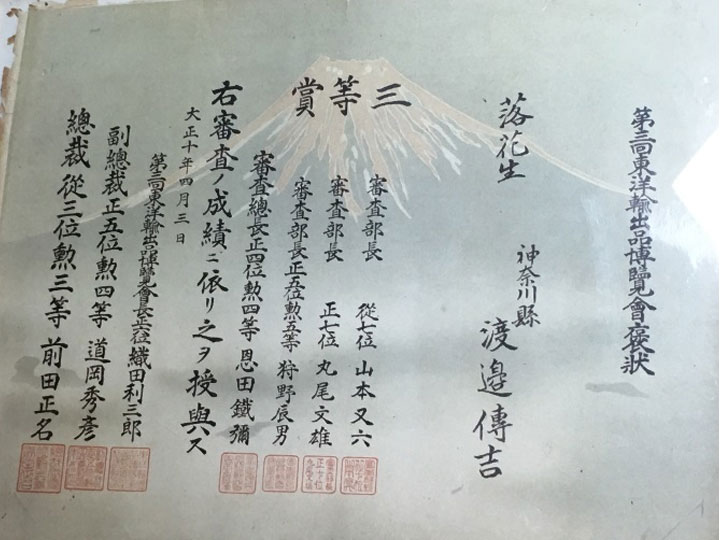 第三回東洋輸出品博覽會褒狀
落花生
神奈川縣 渡邉傳吉
三等賞
審査部長 從七位 山本又六
審査部長 正七位 丸尾文雄
審査部長正五位勲五等 狩野辰男
審査總長正四位勲四等 恩田鐵彌
右審査ノ成績ニ依リ之ヲ授與ス
大正十年四月三日
第三回東洋輸出品博覽會長正六位 織田利三郎
副總裁正五位勲四等 道岡秀彦
總裁從三位勲三等 前田正名